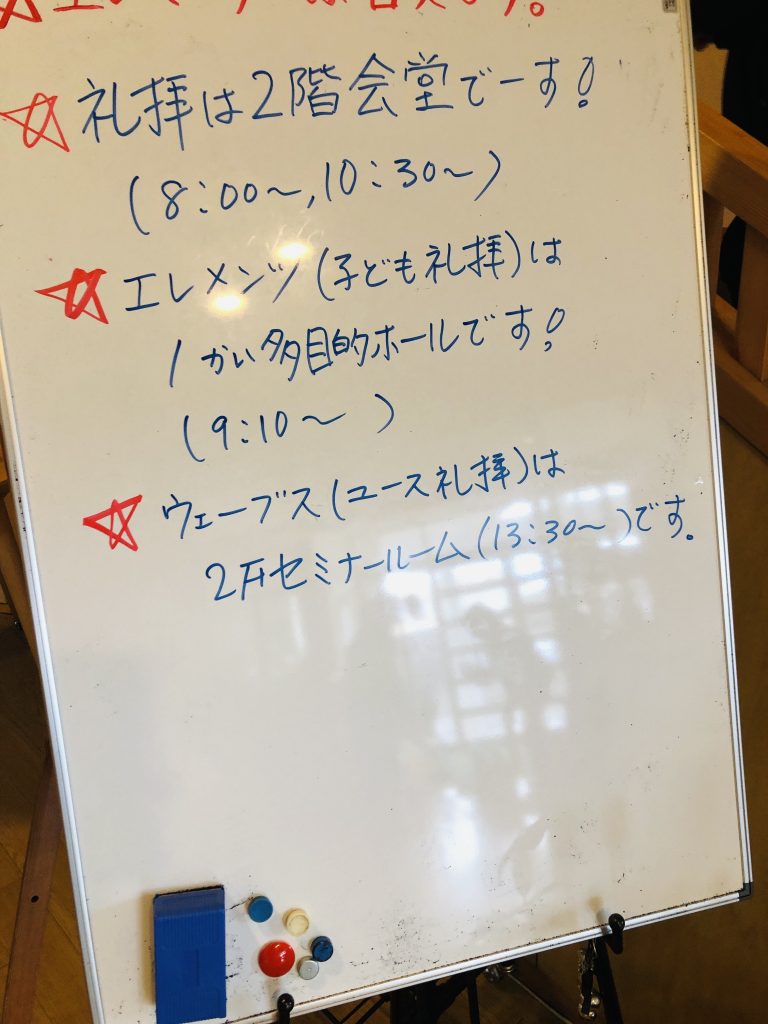 ☆礼拝は2階会堂でーす!
(8:00〜,10:30〜)
☆エレメンツ(子ども礼拝)は
1かい多目的ホールです!
(9:10〜 )
☆ウェーブス(ユース礼拝)は
2Fセミナールーム(13:30〜)です。